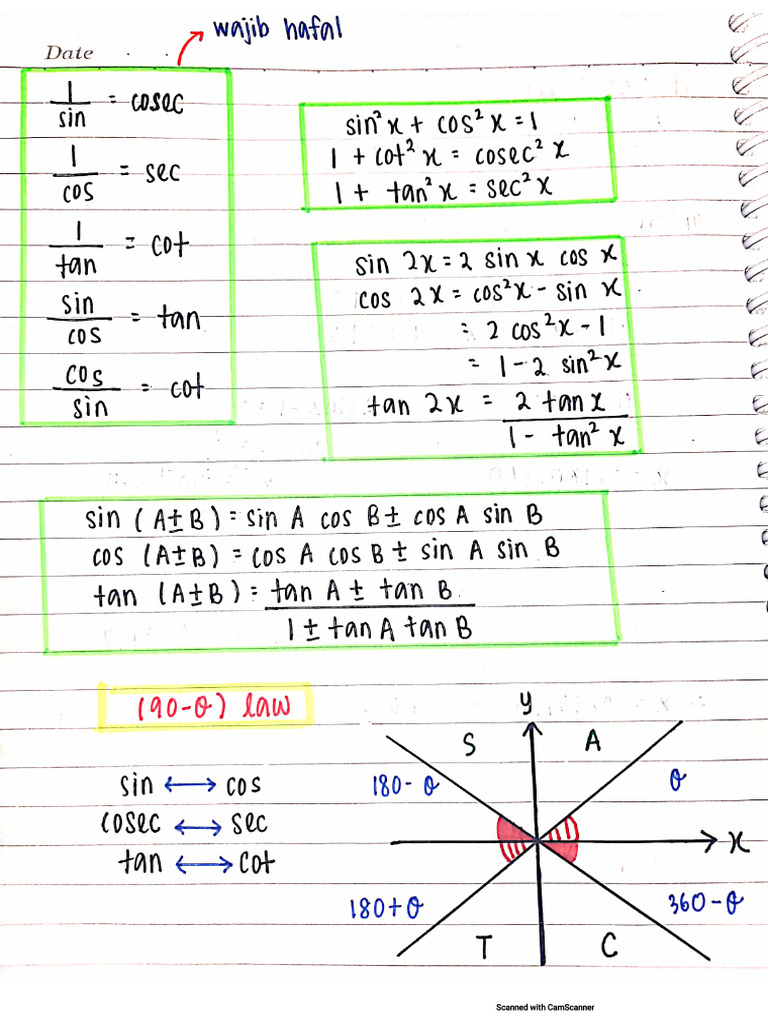 wajib hafal
Date . .
1/sin = cosec
1/cos = sec
1/tan = cot
sin/cos = tan
cos/sin = cot
sin²x + cos²x = 1
1 + cot²x = cosec²x
1 + tan²x = sec²x
sin 2x = 2 sin x cos x
cos 2x = cos²x - sin x
= 2 cos²x - 1
= 1 - 2 sin²x
tan 2x = 2 tan x
1 - tan²x
sin (A±B) = sin A cos B ± cos A sin B
cos (A±B) = cos A cos B ± sin A sin B
tan (A±B) = tan A ± tan B
1 ± tan A tan B
(90-θ) law
sin ↔ cos
cosec ↔ sec
tan ↔ cot
y
S A
180-θ θ
x
180+θ 360-θ
T C
Scanned with CamScanner